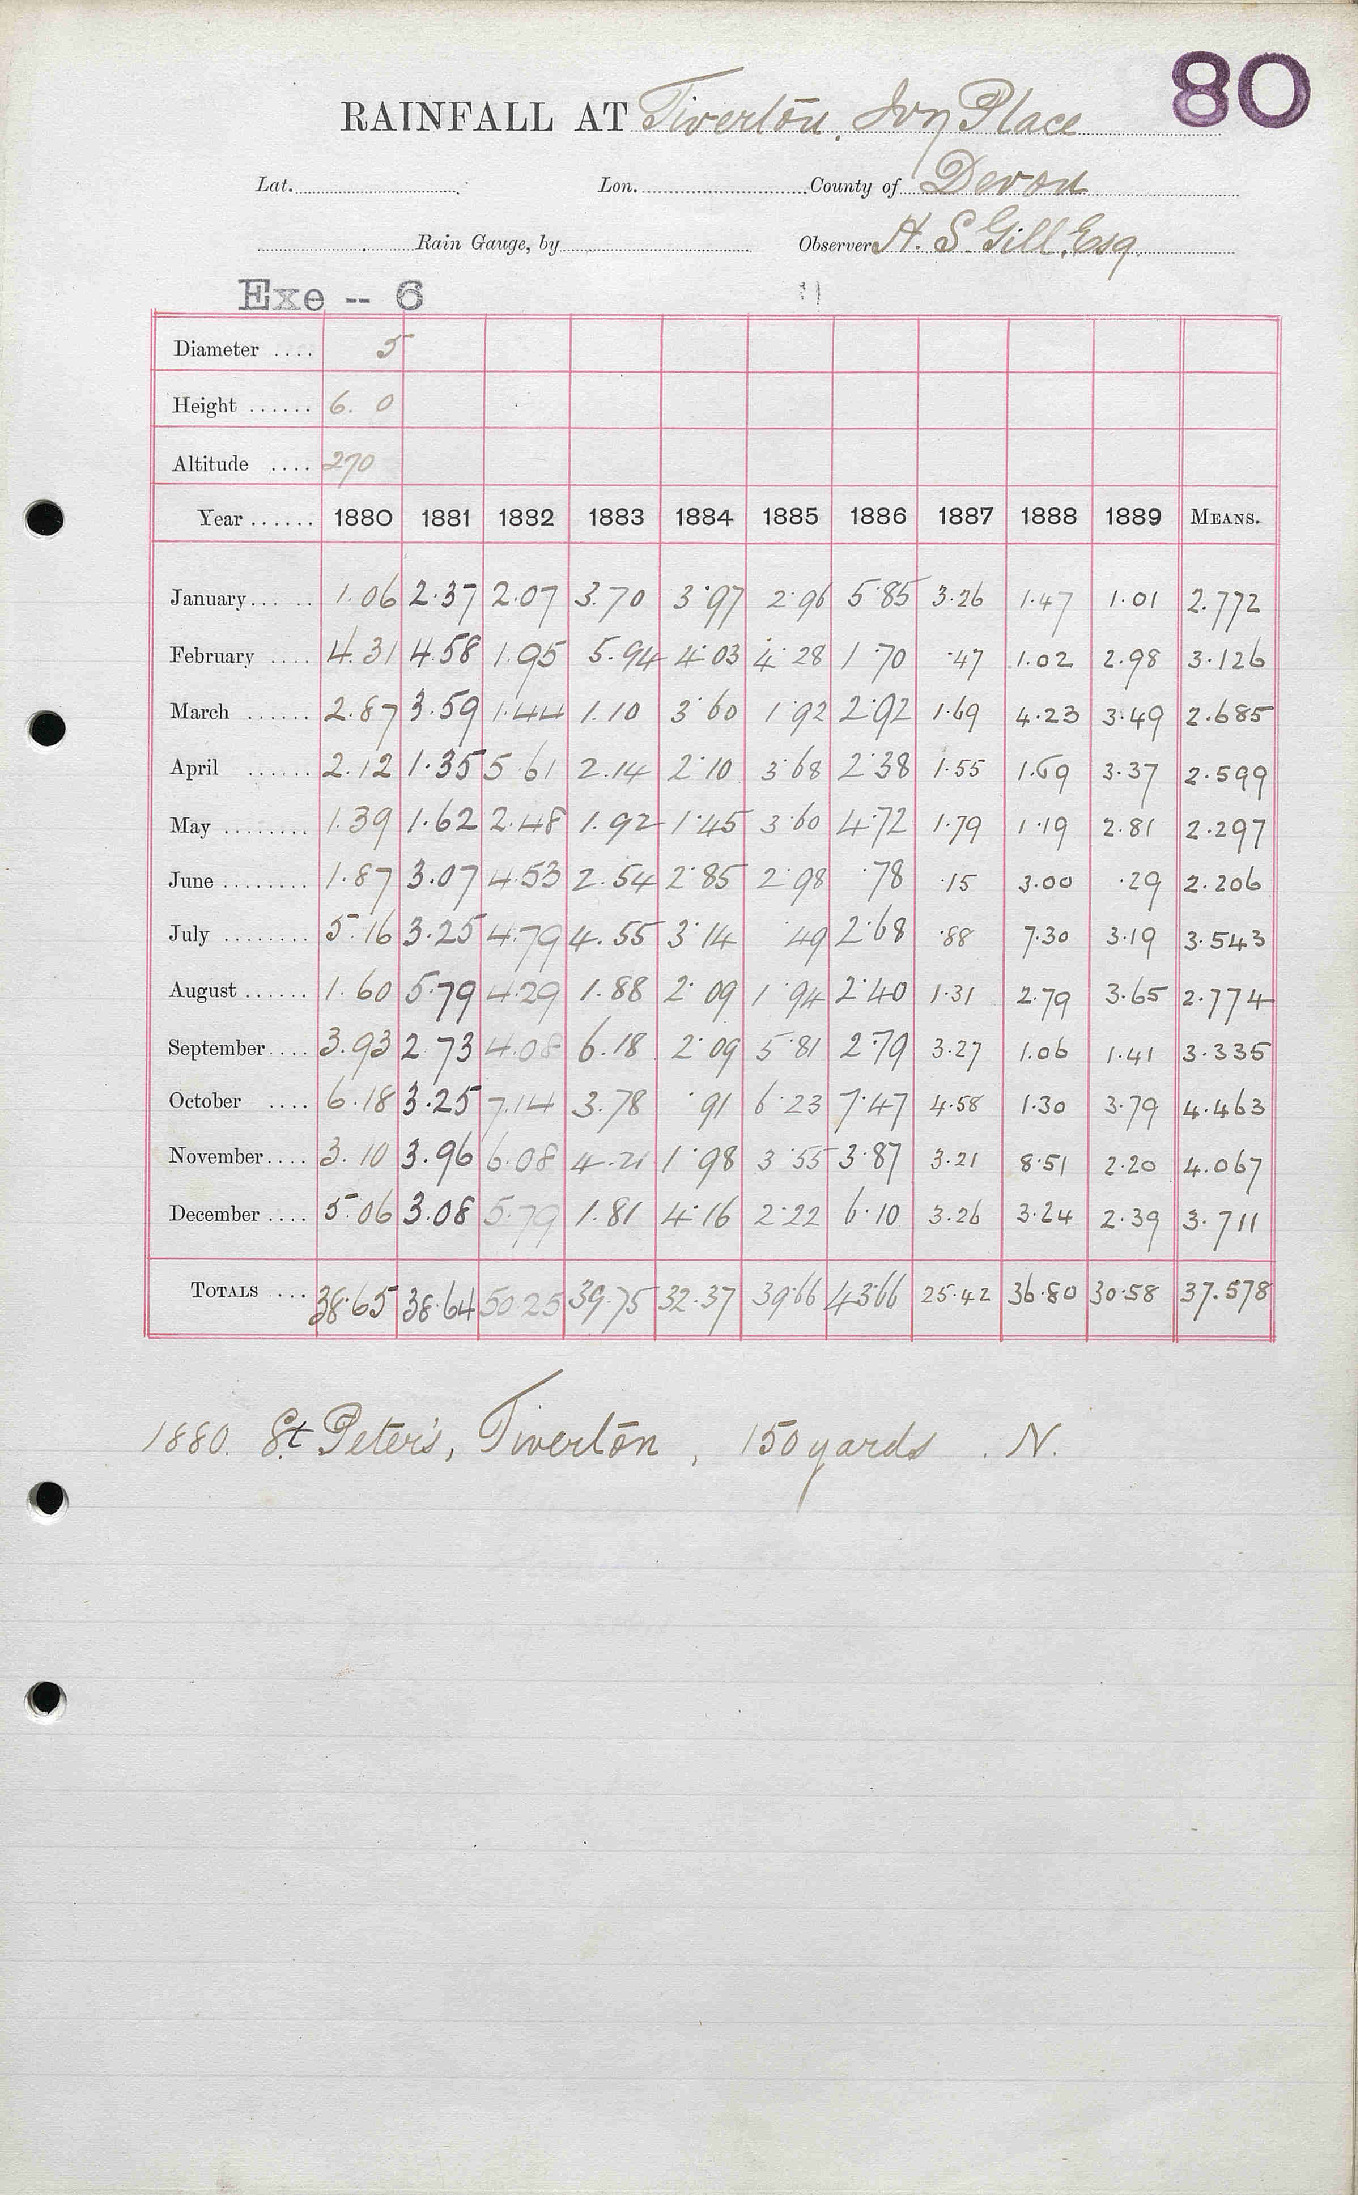 80
RAINFALL AT Tiverton, Ivy Place
Lat. Lon. County of Devon
Rain Gauge, by Observer H. S. Gill, Esq.
Exe -- 6
Diameter .... 5
Height ...... 6. 0
Altitude .... 270
Year ...... 1880 1881 1882 1883 1884 1885 1886 1887 1888 1889 MEANS.
January ...... 1.06 2.37 2.07 3.70 3.97 2.96 5.85 3.26 1.47 1.01 2.772
February .... 4.31 4.58 1.95 5.94 4.03 4.28 1.70 .47 1.02 2.98 3.126
March ...... 2.87 3.59 1.44 1.10 3.60 1.92 2.92 1.69 4.23 3.49 2.685
April ...... 2.12 1.35 5.61 2.14 2.10 3.68 2.38 1.55 1.69 3.37 2.599
May ........ 1.39 1.62 2.48 1.92 1.45 3.60 4.72 1.79 1.19 2.81 2.297
June ........ 1.87 3.07 4.53 2.54 2.85 2.98 .78 .15 3.00 .29 2.206
July ........ 5.16 3.25 4.79 4.55 3.14 .49 2.68 .88 7.30 3.19 3.543
August ...... 1.60 5.79 4.29 1.88 2.09 1.94 2.40 1.31 2.79 3.65 2.774
September.... 3.93 2.73 4.08 6.18 2.09 5.81 2.79 3.27 1.06 1.41 3.335
October .... 6.18 3.25 7.14 3.78 .91 6.23 7.47 4.58 1.30 3.79 4.463
November.... 3.10 3.96 6.08 4.21 1.98 3.55 3.87 3.21 8.51 2.20 4.067
December .... 5.06 3.08 5.79 1.81 4.16 2.22 6.10 3.26 3.24 2.39 3.711
TOTALS ... 38.65 38.64 50.25 39.75 32.37 39.66 43.66 25.42 36.80 30.58 37.578
1880. St. Peter's, Tiverton, 150 yards . N.